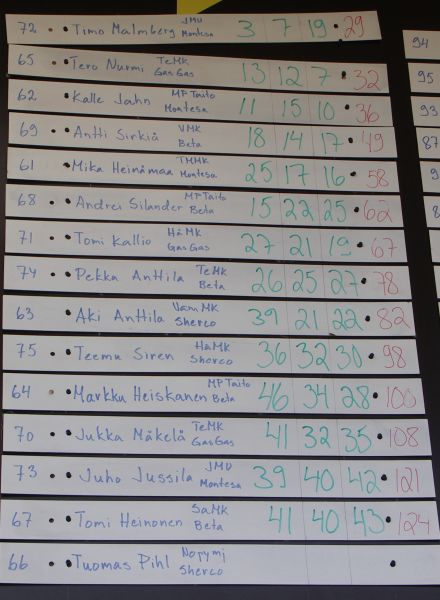 72 Timo Malmberg JMU Montesa 3 7 19 29
65 Tero Nurmi TeMK GasGas 13 12 7 32
62 Kalle Jahn MP Taito Montesa 11 15 10 36
69 Antti Sirkiä VMK Beta 18 14 17 49
61 Mika Heinämaa TMMK Montesa 25 17 16 58
68 Andrei Silander MP Taito Beta 15 22 25 62
71 Tomi Kallio HäMK GasGas 27 21 19 67
74 Pekka Anttila TeMK Beta 26 25 27 78
63 Aki Anttila VamMK Sherco 39 21 22 82
75 Teemu Siren HäMK Sherco 36 32 30 98
64 Markku Heiskanen MP Taito Beta 46 34 28 100
70 Jukka Mäkelä TeMK GasGas 41 32 35 108
73 Juho Jussila JMU Montesa 39 40 42 121
67 Tomi Heinonen SaMK Beta 41 40 43 124
66 Tuomas Pihl Nopymj Sherco
94
95
93
87